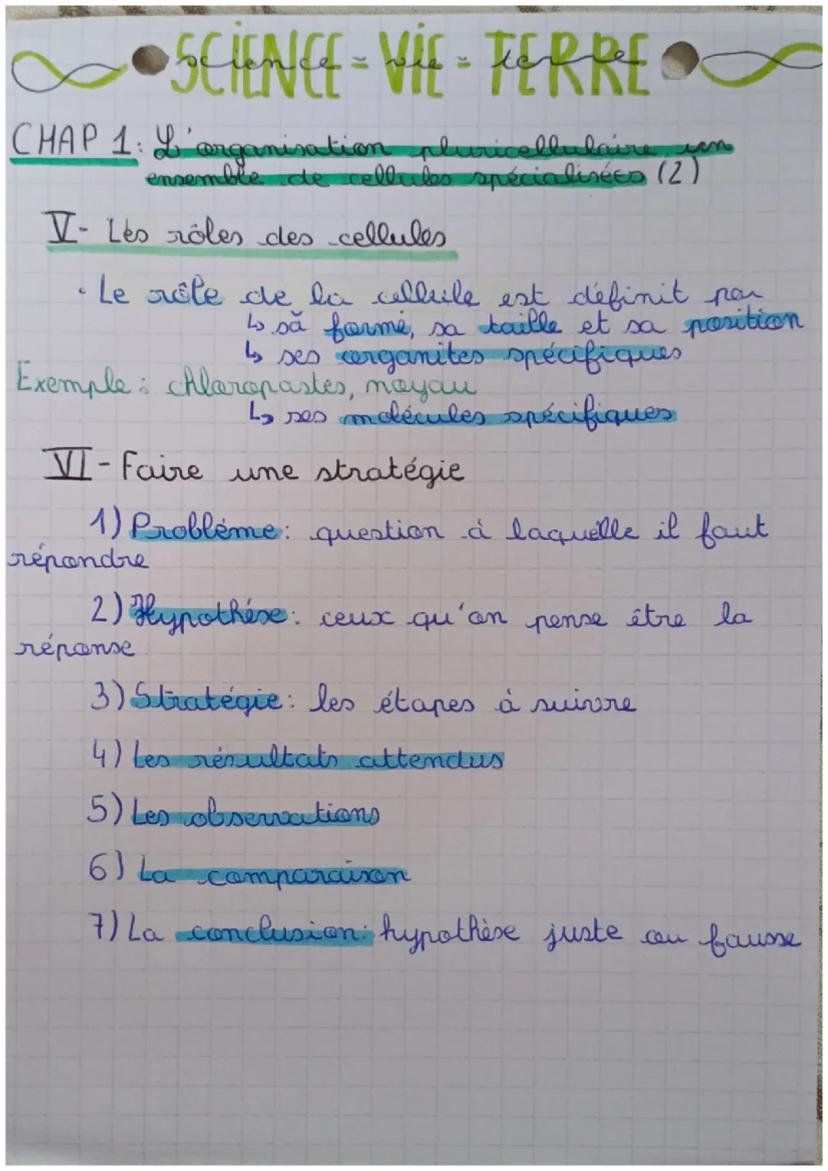 SCIENCE - VIE - TERRE
science - vie - terre
CHAP 1: L'organisation pluricellulaire un
ensemble de cellules spécialisées (2)
V- Les rôles des cellules
• Le rôle de la cellule est définit par
↳ sa forme, sa taille et sa position
↳ ses organites spécifiques
Exemple : chloropastes, noyau
↳ ses molécules spécifiques
VI - Faire une stratégie
1) Problème : question à laquelle il faut
répondre
2) Hypothèse : ceux qu'on pense être la
réponse
3) Stratégie : les étapes à suivre
4) Les résultats attendus
5) Les observations
6) La comparaison
7) La conclusion : hypothèse juste ou fausse